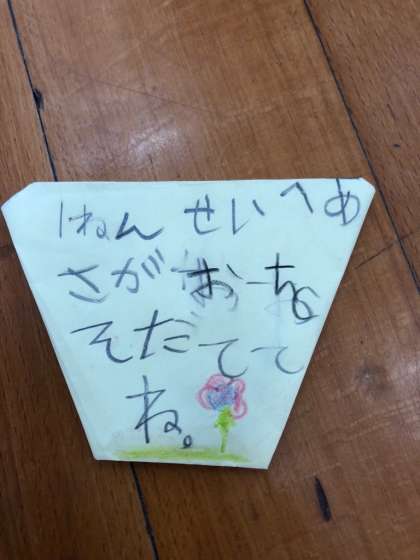 1ねんせいへ あ
さがおを
そだてて
ね。